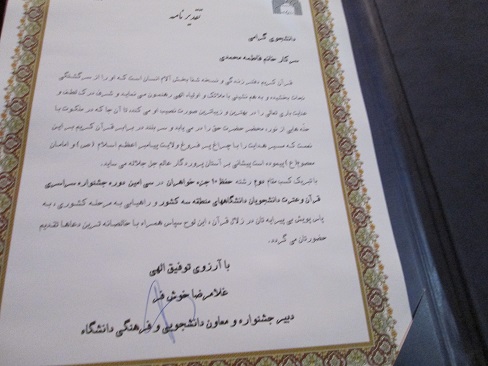 تقدیر نامه
دانشجوی گرامی
سرکار خانم فاطمه محمدی
قرآن کریم دفتر زندگی و نسخه شفا بخش آلام انسان است که او را از سرگشتگی
نجات بخشیده و به هم نشینی با ملائک و اولیاء الهی رهنمون می نماید و شهد درک لطف و
عنایت باری تعالی را در بهترین و زیباترین صورت نصیب او می کند، تا آن جا که در ملکوت با
از نور، محضر حضرت حق را در می یابد و سر بلند در برابر قرآن کریم بر این
که مسیر هدایت را با چراغ پر فروغ ولایت پیامبر اعظم اسلام (ص) و امامان
معصوم(ع) پیموده است پیشانی بر آستان پروردگار عالم جل جلاله می ساید.
با تبریک کسب مقام دوم رشته حفظ ۱۰ جزء خواهران در سی امین دوره جشنواره سراسری
قرآن و عترت دانشجویان دانشگاههای منطقه سه کشور و راهیابی به مرحله کشوری، به
پاس پویش بی پیرایه تان در زلال قرآن، این لوح سپاس همراه با خالصانه ترین دعاها تقدیم
حضورتان می گردد.
با آرزوی توفیق الهی
غلامرضا خوش فر
دبیر جشنواره و معاون دانشجویی و فرهنگی دانشگاه